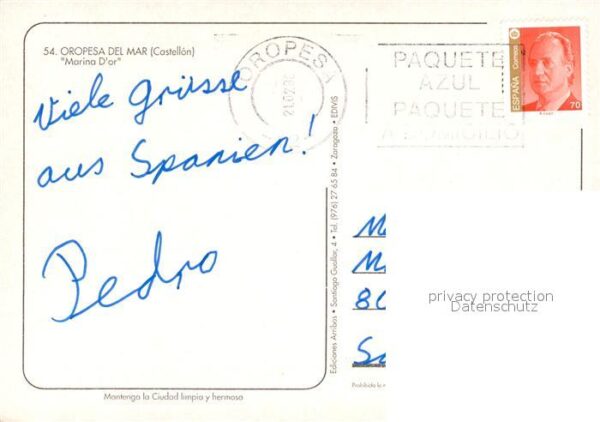 54. OROPESA DEL MAR (Castellón)
"Marina D'or"
Viele grüsse
aus Spanien!
Pedro
OROPESA
PAQUETE
AZUL
PAQUETE
A DOMICILIO
ESPAÑA
Correos
70
Ediciones Arribas • Santiago Guallar, 4 • Tel. (976) 27 65 84 • Zaragoza • EDIVIS
80
privacy protection
Datenschutz
Prohibida la
Mantenga la Ciudad limpia y hermosa